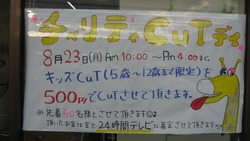 チャリティCuTディ
8月23日(月)Am10:00 ～Pm4:00に
キッズCuT(5歳～12歳まで限定)を
500円でCuTさせて頂きます。
※先着50名様とさせて頂きます
頂いたお金は全て24時間テレビに募金させて頂きます